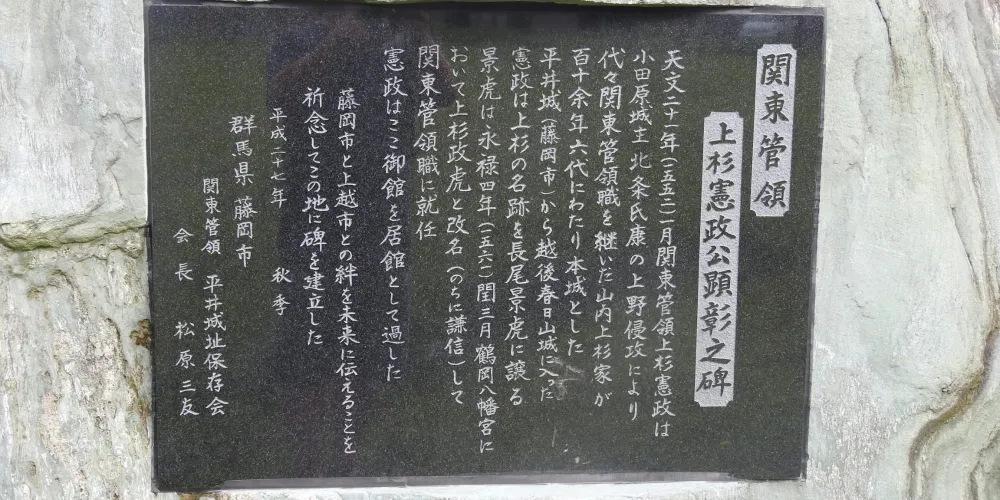 関東管領
上杉憲政公顕彰之碑
天文二十一年(一五五二)一月関東管領上杉憲政は
小田原城主 北条氏康の上野侵攻により
代々関東管領職を継いだ山内上杉家が
百十余年六代にわたり本城とした
平井城(藤岡市)から越後春日山城に入った
憲政は上杉の名跡を長尾景虎に譲る
景虎は永禄四年(一五六一)閏三月鶴岡八幡宮に
おいて上杉政虎と改名(のちに謙信)して
関東管領職に就任
憲政はここ御館を居館として過した
藤岡市と上越市との絆を未来に伝えることを
祈念してこの地に碑を建立した
平成二十七年 秋季
群馬県 藤岡市
関東管領 平井城址保存会
会長 松原三友